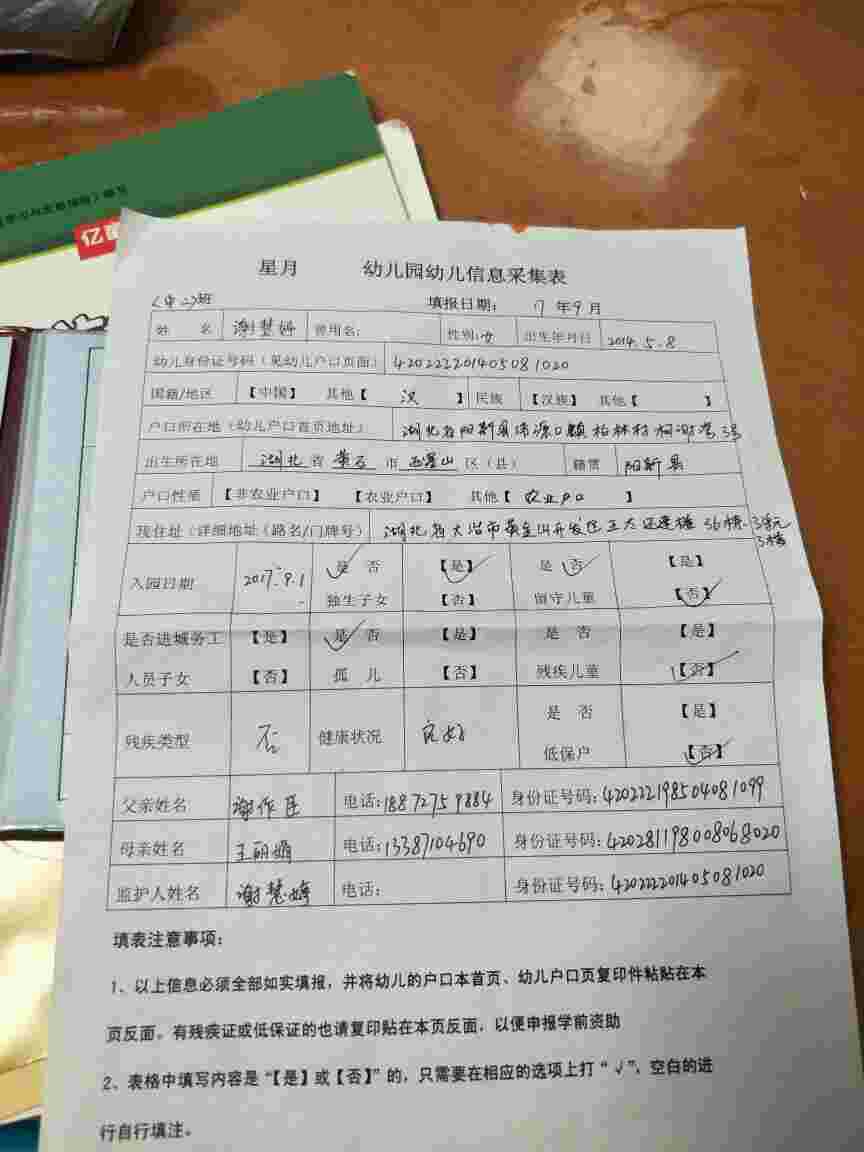 亿
星月 幼儿园幼儿信息采集表
(中二)班 填报日期: 17年9月
姓 名 谢慧婷 曾用名: 性别:女 出生年月日 2014.5.8
幼儿身份证号码(见幼儿户口页面) 420222201405081020
国籍/地区 【中国】 其他【 汉 】 民族 【汉族】 其他【 】
户口所在地(幼儿户口首页地址) 湖北省阳新县 口镇柏林村柯谢 3号
出生所在地 湖北省 黄石 市 西塞山 区(县) 籍贯 阳新县
户口性质 【非农业户口】 【农业户口】 其他【 农业户口 】
现住址(详细地址(路名/门牌号) 湖北省大冶市黄金山开发区王太还建楼36栋3单元
3楼
入园日期 2017.9.1 是 否 【是】 是 否 【是】
独生子女 【否】 留守儿童 【否】
是否进城务工 【是】 是 否 【是】 是 否 【是】
人员子女 【否】 孤 儿 【否】 残疾儿童 【否】
残疾类型 否 健康状况 良好 是 否 【是】
低保户 【否】
父亲姓名 谢作臣 电话:18872759884 身份证号码:420222198504081099
母亲姓名 王丽娟 电话:13387104690 身份证号码:420281198008068020
监护人姓名 谢慧婷 电话: 身份证号码:420222201405081020
填表注意事项:
1、以上信息必须全部如实填报,并将幼儿的户口本首页、幼儿户口页复印件粘贴在本
页反面。有残疾证或低保证的也请复印贴在本页反面,以便申报学前资助
2、表格中填写内容是“【是】或【否】”的,只需要在相应的选项上打“√”,空白的进
行自行填注。